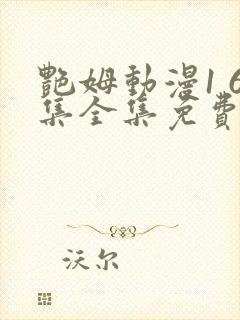 艷姆動漫1 6
集全集免費
沃尔